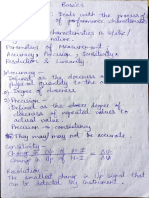 Basics
: Deals with the process of
of performance characteristics
characteristics is static/
Parameters of Measurement :
Accuracy, Precision, Sensitivity,
Resolution & Linearity.
Accuracy -
as the closeness
physical quantity to the
Degree of closeness
Precision -
Defined as the closer degree
of closeness of repeated values to
actual value.
Precision → consistency
They may/may not be accurate
Sensitivity -
Change in O/P of M.I = ΔO
Change in I/P of M.I ΔI
Resolution -
The smallest change in I/P signal that
can be detected by instrument.